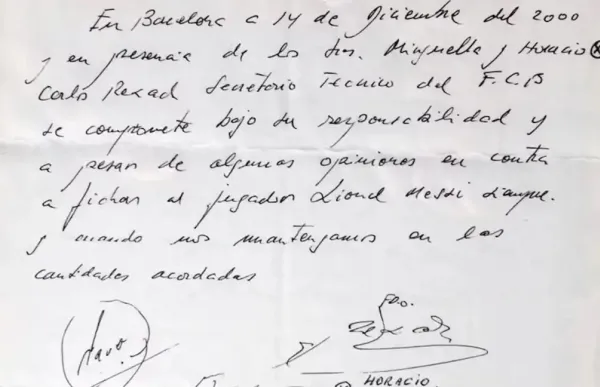 En Barcelona a 14 de Diciembre del 2000
y en presencia de los Srs. Minguella y Horacio
Carlos Rexach Secretario Tecnico del F.C.B
se compromete bajo su responsabilidad y
a pesar de algunas opiniones en contra
a fichar al jugador Lionel Messi siempre
y cuando nos mantengamos en las
cantidades acordadas
Fdo.
HORACIO